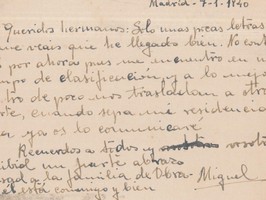 Madrid - 7-1-1940
Queridos hermanos: Solo unas pocas letras
que veais que he llegado bien. No cont
por ahora pues me encuentro en un
po de clasificación, y a lo mejor
tro de poco nos trasladan a otro
rte, cuando sepa mi residencia
ya os lo comunicaré
Recuerdos a todos y vosotros
cibid un fuerte abrazo
la familia de Miguel
está conmigo y bien